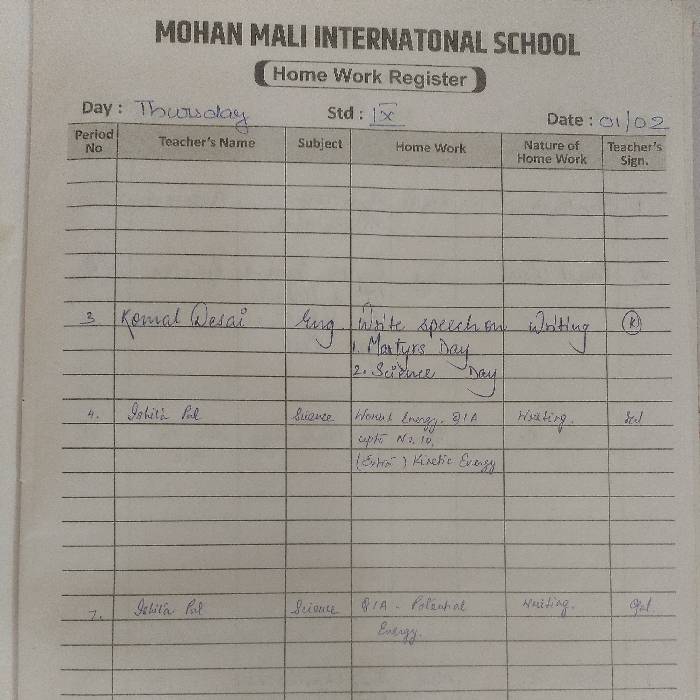 MOHAN MALI INTERNATONAL SCHOOL
Home Work Register
Day : Thursday Std : IX Date : 01/02
Period No Teacher's Name Subject Home Work Nature of Home Work Teacher's Sign.
3. Komal Desai Eng. Write speech on Writing K
1. Martyrs Day
2. Science Day
4. Ishita Pal Science Energy. Q/A Writing.
upto No. 10.
(Extra) Kinetic Energy
7. Ishita Pal Science Q/A - Potential Writing.
Energy.